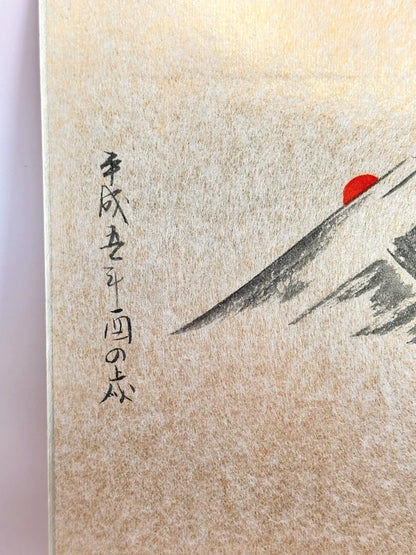 平成五年酉の歳